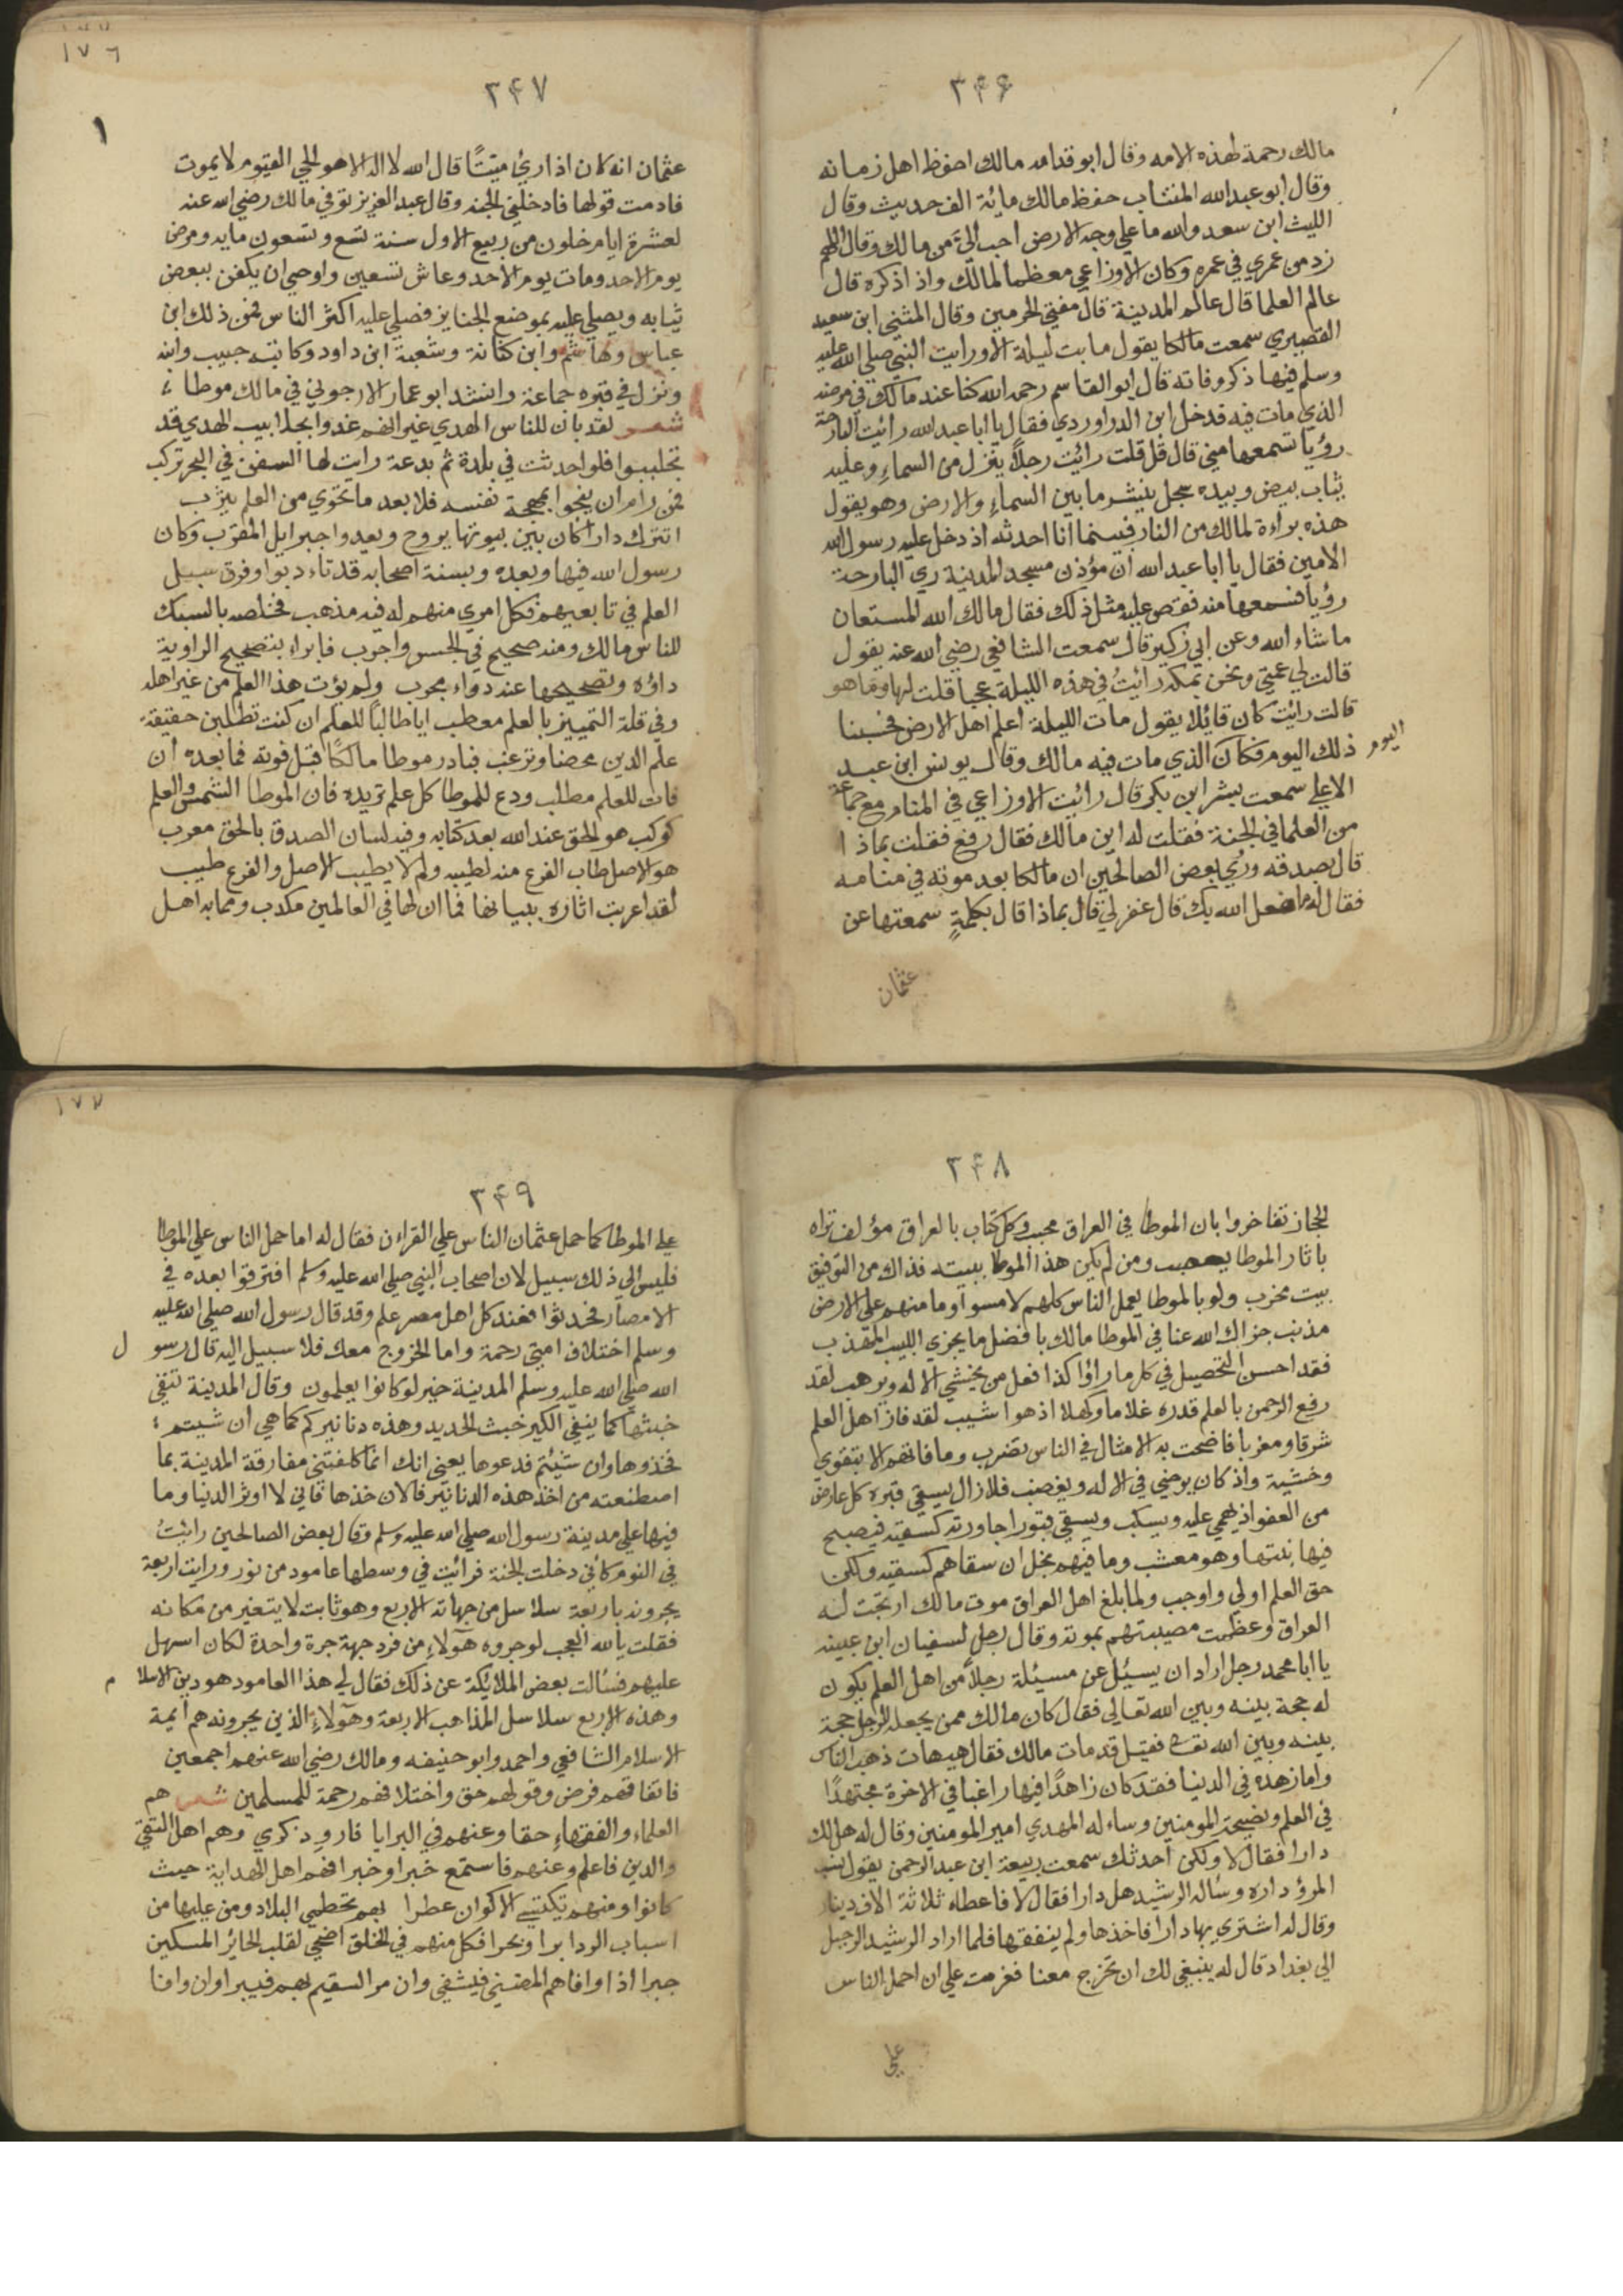 ٣٤٦
مالك رحمة لهذه الامه وقال ابو قدامه مالك احفظ اهل زمانه
وقال ابو عبد الله المنتاب حفظ مالك مائة الف حديث وقال
الليث ابن سعد والله ما علي وجه الارض احب اليَّ من مالك وقال اللهم
زد من عمري في عمره وكان الاوزاعي معظما لمالك واذ اذكره قال
عالم العلما قال عالم المدينة قال مفتي الحرمين وقال المثني ابن سعيد
القصيري سمعت مالكا يقول ما بت ليلة الا ورايت النبي صلي الله عليه
وسلم فيها ذكر وفاته قال ابو القاسم رحمه الله كنا عند مالك في مرضه
الذي مات فيه فدخل ابن الدراوردي فقال يا ابا عبد الله رائيت البارحة
رؤيا تسمعها مني قال قل قلت رائيت رجلاً ينزل من السماءِ وعليه
ثياب بيض وبيده سجل ينشر ما بين السماءِ والارض وهو يقول
هذه براءة لمالك من النار فبينما انا احدثه اذ دخل عليه رسول الله
الامين فقال يا ابا عبد الله ان مؤذن مسجد المدينة ري البارحة
رؤيا فسمعها منه فقص عليه مثل ذلك فقال مالك الله المستعان
ما شاء الله وعن ابي زكير قال سمعت الشافعي رضي الله عنه يقول
قالت لي عمتي ونحن بمكه رائيتُ في هذه الليلة عجباً قلت لها وما هو
قالت رائيت كان قائلا يقول مات الليلة اعلم اهل الارض فحسبنا
ذلك اليوم فكان الذي مات فيه مالك وقال يونس ابن عبد
اليوم
الاعلي سمعت بشر ابن بكر قال رائيت الاوزاعي في المنام مع جماعة
من العلما في الجنة فقلت له اين مالك فقال رفع فقلت بماذا
قال بصدقه وري بعض الصالحين ان مالكا بعد موته في منامه
فقال له ما فعل الله بك قال غفر لي قال بماذا قال بكلمةٍ سمعتها عن
عثمان
١٧٦
٣٤٧
١
عثمان انه كان اذا رئ ميتًا قال الله لا اله الا هو الحي القيوم لا يموت
فادمت قولها فادخلني الجنه وقال عبد العزيز توفي مالك رضي الله عنه
لعشرة ايام خلون من ربيع الاول سنة تسع وتسعون مايه ومرض
يوم الاحد ومات يوم الاحد وعاش تسعين واوصي ان يكفن ببعض
ثيابه ويصلي عليه بموضع الجنايز فصلي عليه اكثر الناس فمن ذلك ابن
عباس وهاشم وابن كنانة وشعبة ابن داود وكاتبه حبيب وابنه
ونزل في قبره جماعة وانشد ابو عمار الارجوني في مالك موطا
شعر لقد بان للناس الهدي غير انهم غدوا بجلابيب الهدي قد
تجلببوا فلو احدثت في بلدة ثم بدعة رايت لها السفن في البحر تركب
فمن رام ان ينجوا بمهجة نفسه فلا بعد ما تحوي من العلم يثرب
اتترك دارا كان بين بيوتها يروح ويغدوا جبرايل المقرب وكان
رسول الله فيها وبعده وبسنة اصحابه قد تاءدبوا وفرق سبيل
العلم في تابعيهم فكل امري منهم له فيه مذهب فخلصه بالسبك
للناس مالك ومنه صحيح في الجس واجرب فابراء بتصحيح الراوية
داؤه وتصحيحها عنه دواء مجرب ولم يؤت هذا العلم من غير اهله
وفي قلة التمييز بالعلم معطب ايا طالباً للعلم ان كنت تطلبن حقيقة
علم الدين محضا وترغب فبادر موطا مالكًا قبل فوته فما بعده ان
فات للعلم مطلب ودع للموطا كل علم تريده فان الموطا الشمس والعلم
كوكب هو الحق عند الله بعد كتابه وفيه لسان الصدق بالحق معرب
هو الاصل طاب الفرع منه لطيبه ولم لا يطيب الاصل والفرع طيب
لقد اعربت اثاره ببيانها فما ان لها في العالمين مكدب ومما به اهل
٣٤٨
الحجاز تفاخروا بان الموطا في العراق محبب وكل كتاب بالعراق مؤلف تراه
باثار الموطا يعصب ومن لم يكن هذا الموطا ببيته فذاك من التوفيق
بيت مخرب ولو بالموطا يعمل الناس كلهم لامسوا وما منهم علي الارض
مذنب جزاك الله عنا في الموطا مالك بافضل ما يجزي اللبيب المهذب
فقد احسن التحصيل في كل ما راؤا كذا فعل من يخشي الاله ويرهب لقد
رفع الرحمن بالعلم قدره غلاما وكهلا اذ هوا شيب لقد فاز اهل العلم
شرقا ومغربا فاضحت به الامثال في الناس تضرب وما فاتهم الا بتقوي
وخشية واذ كان يرضي في الاله ويغضب فلا زال يسقي قبره كل عارض
من العفو اذ يهمي عليه ويسكب ويسقي قبورا جاورته كسقيه فيصبح
فيها نبتها وهو معشب وما فيهم بخل ان سقاهم كسقيه ولكن
حق العلم اولي واوجب ولما بلغ اهل العراق موت مالك ارتجت له
العراق وعظمت مصيبتهم بموته وقال رجل لسفيان ابن عيينه
يا ابا محمد رجل اراد ان يسئل عن مسئلة رجلاً من اهل العلم يكون
له حجة بينه وبين الله تعالي فقال كان مالك ممن يجعله الرجل حجة
بينه وبين الله تعالي فقيل قد مات مالك فقال هيهات ذهب الناس
واما زهده في الدنيا فقد كان زاهدًا فيها راغبا في الاخرة مجتهدًا
في العلم ونصيحة المومنين وساء له المهدي امير المومنين وقال له هل لك
دارا فقال لا ولكن احدثك سمعت ربيعة ابن عبد الرحمن يقول نسب
المرؤ داره وساله الرشيد هل دارا فقال لا فاعطاه ثلاثة الاف دينار
وقال له اشتري بها دارا فاخذها ولم ينفقها فلما اراد الرشيد الرحيل
الي بغداد قال له ينبغي لك ان تخرج معنا فعزمت علي ان احمل الناس
علي
١٧٧
٣٤٩
علي الموطا كما حمل عثمان الناس علي القراءن فقال له اما حمل الناس علي الموطا
فليس الي ذلك سبيل لان اصحاب النبي صلي الله عليه وسلم افترقوا بعده في
الامصار فحدثوا فعند كل اهل مصر علم وقد قال رسول الله صلي الله عليه
وسلم اختلاف امتي رحمة واما الخروج معك فلا سبيل اليه قال رسول
الله صلي الله عليه وسلم المدينة خير لو كانوا يعلمون وقال المدينة تنقي
خبثها كما ينفي الكير خبث الحديد وهذه دنانيركم كما هي ان شيتم
فخذوها وان شئتم فدعوها يعني انك انما كلفتني مفارقة المدينة بما
اصطنعته من اخذ هذه الدنانير فالان خذها فاني لا اوثر الدنيا وما
فيها علي مدينة رسول الله صلي الله عليه وسلم وقال بعض الصالحين رائيتُ
في النوم كاني دخلت الجنة فرائيت في وسطها عامود من نور ورايت اربعة
يجرونه باربعة سلاسل من جهاته الاربع وهو ثابت لا يتغير من مكانه
فقلت يالله العجب لو جروه هولاءِ من فرد جهة جرة واحدة لكان اسهل
عليهم فسالت بعض الملائكة عن ذلك فقال لي هذا العامود هو دين الاسلام
وهذه الاربع سلاسل المذاهب الاربعة وهولاءِ الذين يجرونه هم ايمة
الاسلام الشافعي واحمد وابو حنيفه ومالك رضي الله عنهم اجمعين
فاتفاقهم فرض وقولهم حق واختلافهم رحمة للمسلمين شعر هم
العلماء والفقهاءِ حقا وعنهم في البرايا فاروِ ذكري وهم اهل التقي
والدين فاعلم وعنهم فاستمع خبرا وخبرا فهم اهل الهداية حيث
كانوا ومنهم يكتسي الاكوان عطرا بهم تحظي البلاد ومن عليها من
اسباب الردا برا وبحرا فكل منهم في الخلق اضحي لقلب الحائر المسكين
جبرا اذا وافاهم المضني فيشفي وان مر السقيم بهم فيبرا وان وافا